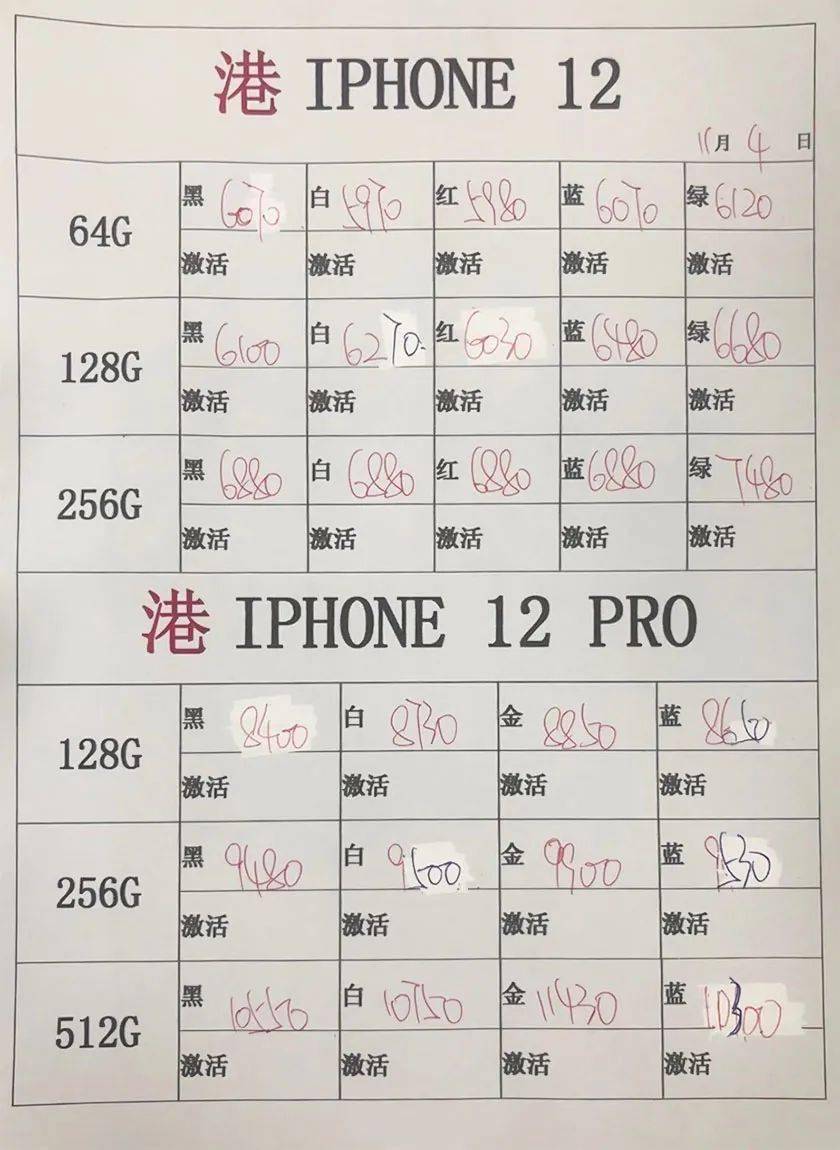 港 IPHONE 12
11月 4 日
64G 黑 6070 白 5970 红 5980 蓝 6070 绿 6120
激活 激活 激活 激活 激活
128G 黑 6100 白 6270 红 6030 蓝 6480 绿 6680
激活 激活 激活 激活 激活
256G 黑 6880 白 6880 红 6880 蓝 6880 绿 7480
激活 激活 激活 激活 激活
港 IPHONE 12 PRO
128G 黑 8400 白 8730 金 8850 蓝 8650
激活 激活 激活 激活
256G 黑 9480 白 9500 金 9900 蓝 9530
激活 激活 激活 激活
512G 黑 10550 白 10750 金 11430 蓝 10300
激活 激活 激活 激活